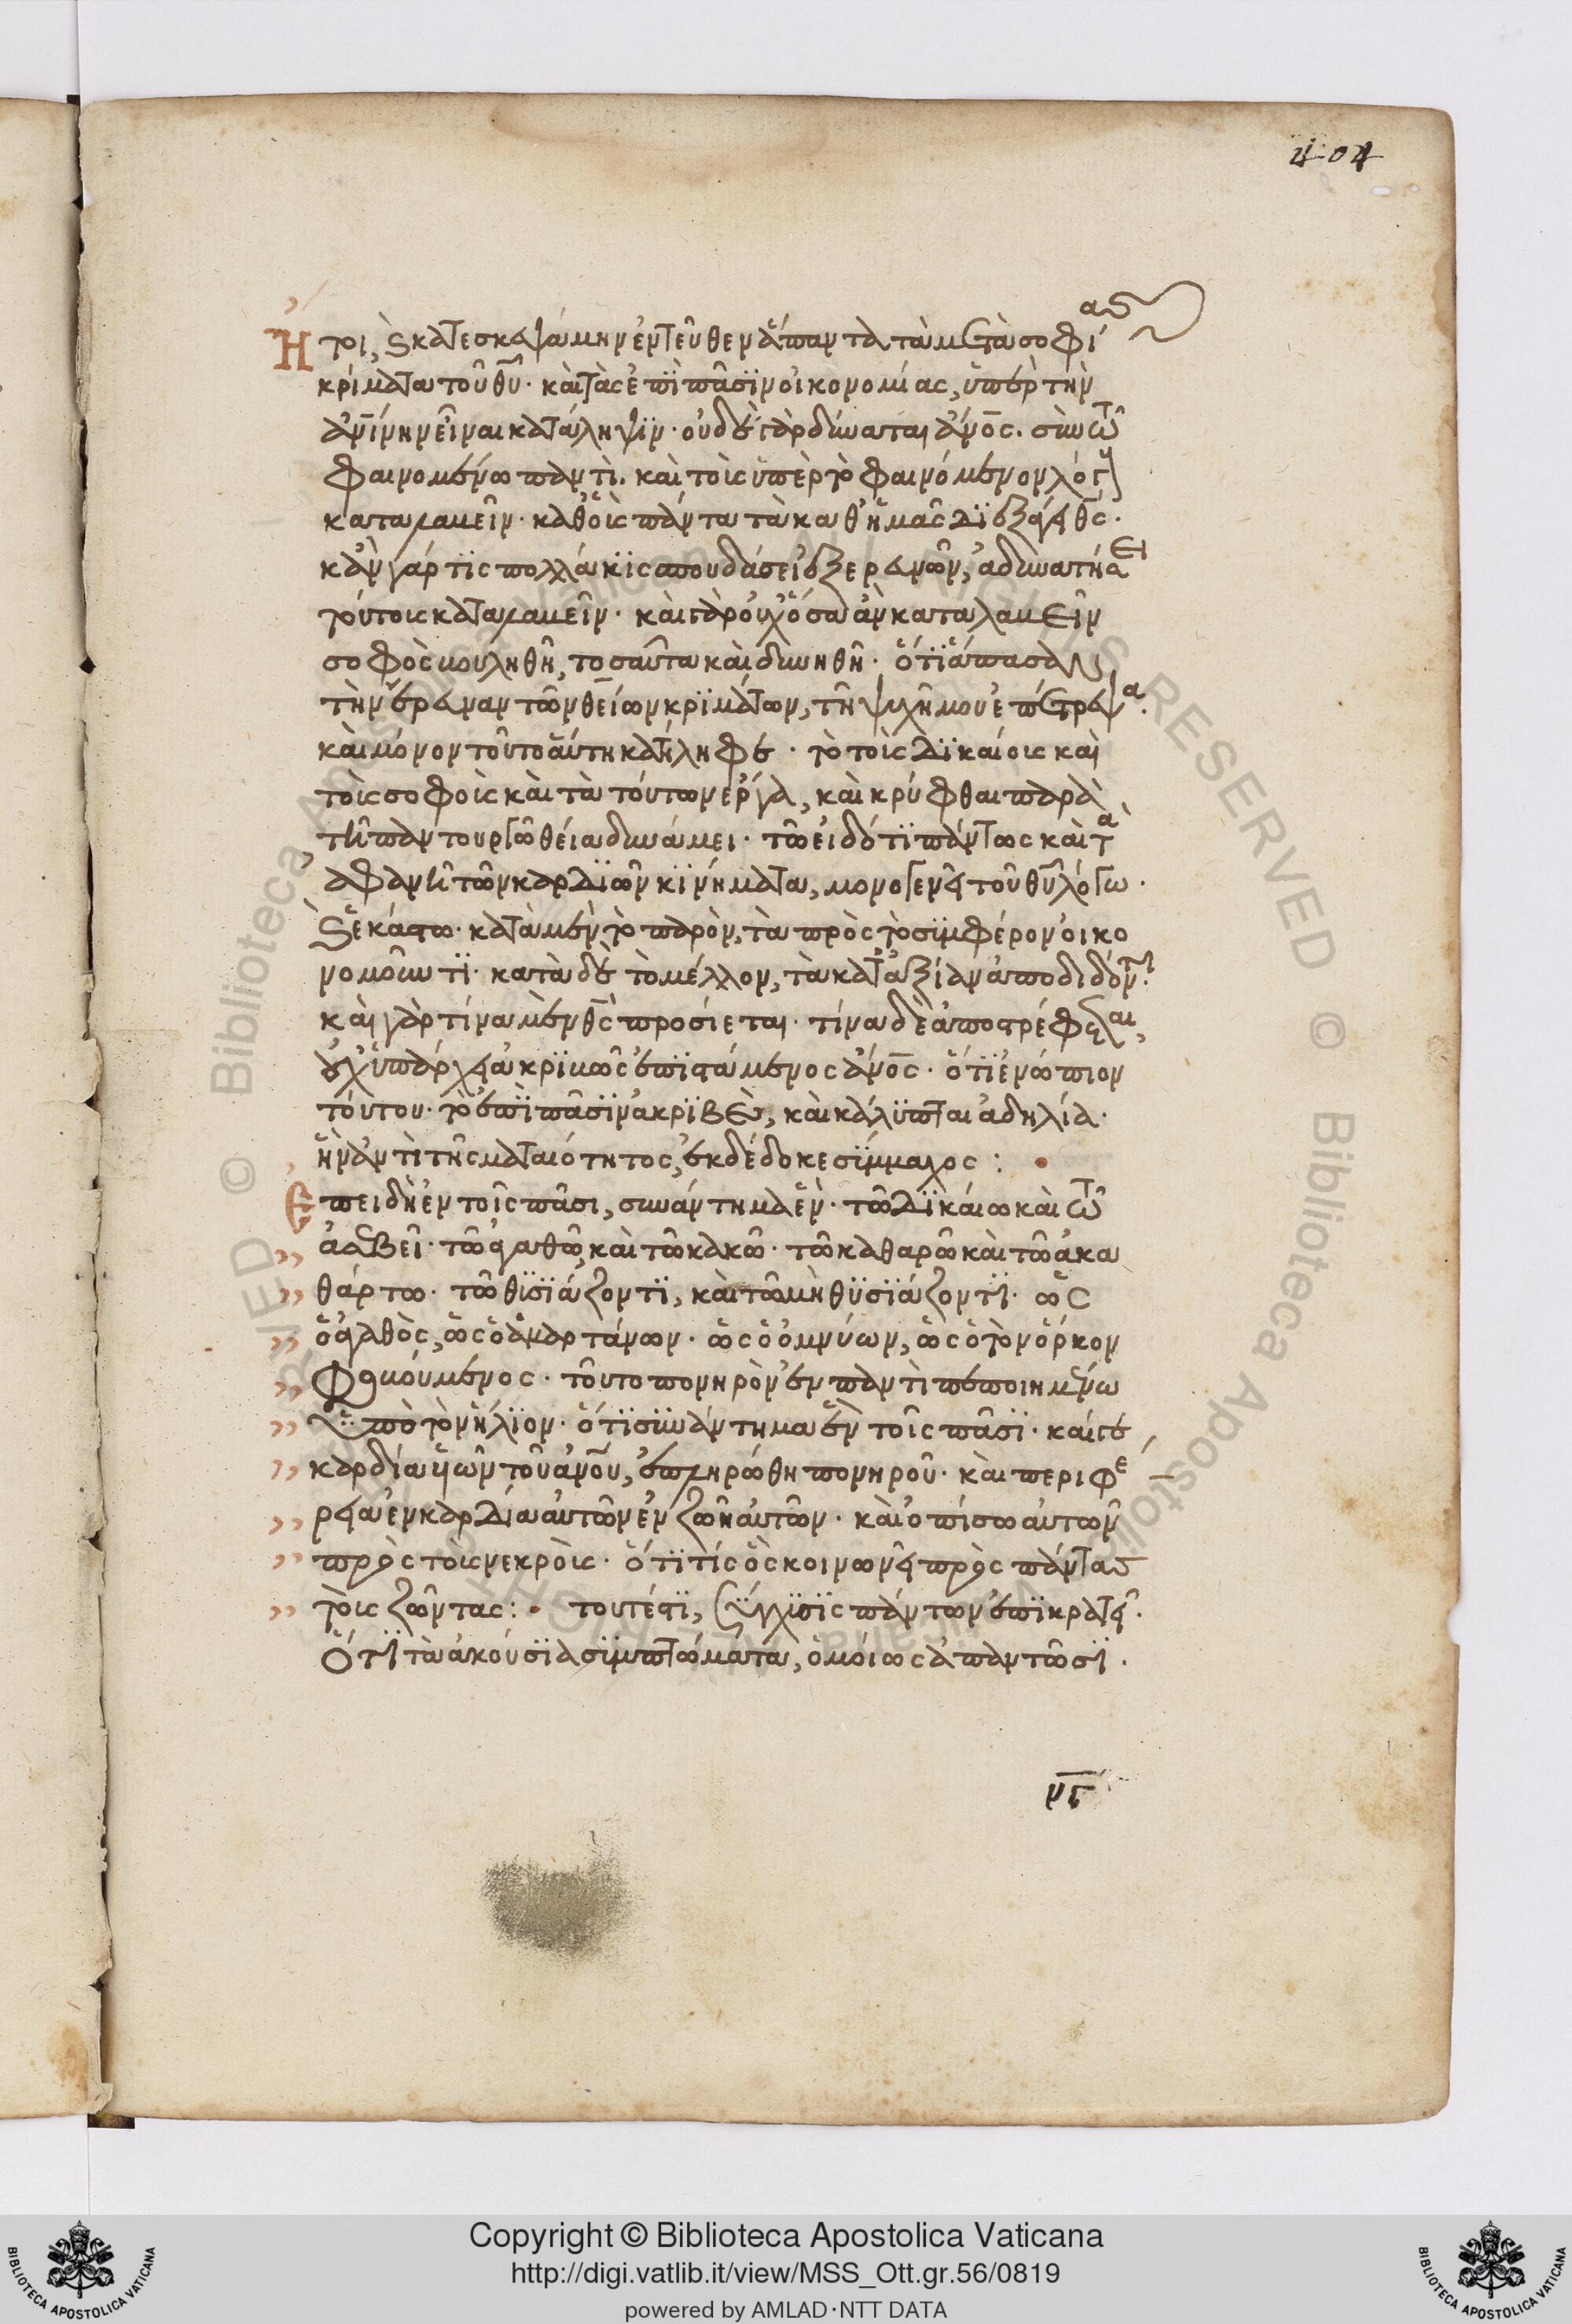 404
Ἤτοι, ὃ κατεσκεψάμην ἐντεῦθεν ἅπαντα τὰ μετὰ σοφίας
κρίματα τοῦ θῡ· καὶ τὰς ἐπὶ πᾶσιν οἰκονομίας, ὑπὲρ τὴν
ἀν̅ίνην εἶναι κατάληψιν· οὐδὲ γὰρ δύναται ἄνο̅ς. σὺν τῶ
φαινομένω παντὶ. καὶ τοῖς ὑπὲρ τὸ φαινόμενον λόγοις
καταλαβεῖν· καθ' οἷς πάντα τὰ καθ' ἡμᾶς διεξάγει θς̅.
κἂν γάρ τις πολλάκις σπουδάσει ἐξερευνῶν, ἀδυνατήσει
τούτοις καταλαβεῖν· καὶ γὰρ οὐχ' ὅσα ἂν καταλαβεῖν
σοφὸς βουληθῆ, τοσαῦτα καὶ δυνηθῆ· ὅτι ἅπασαν
τὴν ἔρευναν τῶν θείων κριμάτων, τῆ ψυχῆ μου ἐπέτρεψα.
καὶ μόνον τοῦτο αὕτη κατείληφε· τὸ τοῖς δικαίοις καὶ
τοῖς σοφοῖς καὶ τὰ τούτων ἔργα, καὶ κρύφθαι παρὰ
τῆ παντουργῶ θεία δυνάμει· τῶ εἰδότι πάντως καὶ τὰ
ἀφανῆ τῶν καρδιῶν κινήματα, μονογενεῖ τοῦ θῡ λόγω.
ὃ ἑκάστω· κατὰ μὲν τὸ παρὸν, τὰ πρὸς τὸ συμφέρον οἰκο
νομοῦντι· κατὰ δὲ τὸ μέλλον, τὰ κατ' ἀξίαν ἀποδιδόντι.
καὶ γὰρ τίνα μὲν θς̅ προσίεται· τίνα δὲ ἀποστρέφεται,
οὐχ' ὑπάρχει ἀκριβῶς ἐπιστάμενος ἄνο̅ς· ὅτι ἐνώπιον
τούτου· τὸ ἐπὶ πᾶσιν ἀκριβὲς, καὶ κάλυπται ἀδηλία.
ἣν ἀντὶ τῆς ματαιότητος, ἐκδέδοκε σύμμαχος :
Επειδὴ ἐν τοῖς πᾶσι, συνάντημα ἓν· τῶ δικαίω καὶ τῶ
ἀσεβεῖ· τῶ ἀγαθῶ, καὶ τῶ κακῶ· τῶ καθαρῶ καὶ τῶ ἀκα
θάρτω· τῶ θυσιάζοντι, καὶ τῶ μὴ θυσιάζοντι· ὡς
ὁ ἀγαθὸς, ὡς ὁ ἁμαρτάνων· ὡς ὁ ὀμνύων, ὡς ὁ τὸν ὅρκον
φοβούμενος· τοῦτο πονηρὸν ἐν παντὶ πεποιημένω
ὑπὸ τὸν ἥλιον· ὅτι συνάντημα ἓν τοῖς πᾶσι· καί γε
καρδία υἱῶν τοῦ ἀνο̅υ, ἐπληρώθη πονηροῦ· καὶ περιφέ
ρεια ἐν καρδία αὐτῶν ἐν ζωῆ αὐτῶν· καὶ ὀπίσω αὐτῶν
πρὸς τοὺς νεκροὺς· ὅτι τίς ὃς κοινωνεῖ πρὸς πάντας
τοὺς ζῶντας: τουτέστι, σύγχυσις πάντων ἐπικρατεῖ.
Ὅτι τὰ ἀκούσια συμπτώματα, ὁμοίως ἀπαντῶσι.
νγ̅
Copyright © Biblioteca Apostolica Vaticana
http://digi.vatlib.it/view/MSS_Ott.gr.56/0819
powered by AMLAD·NTT DATA